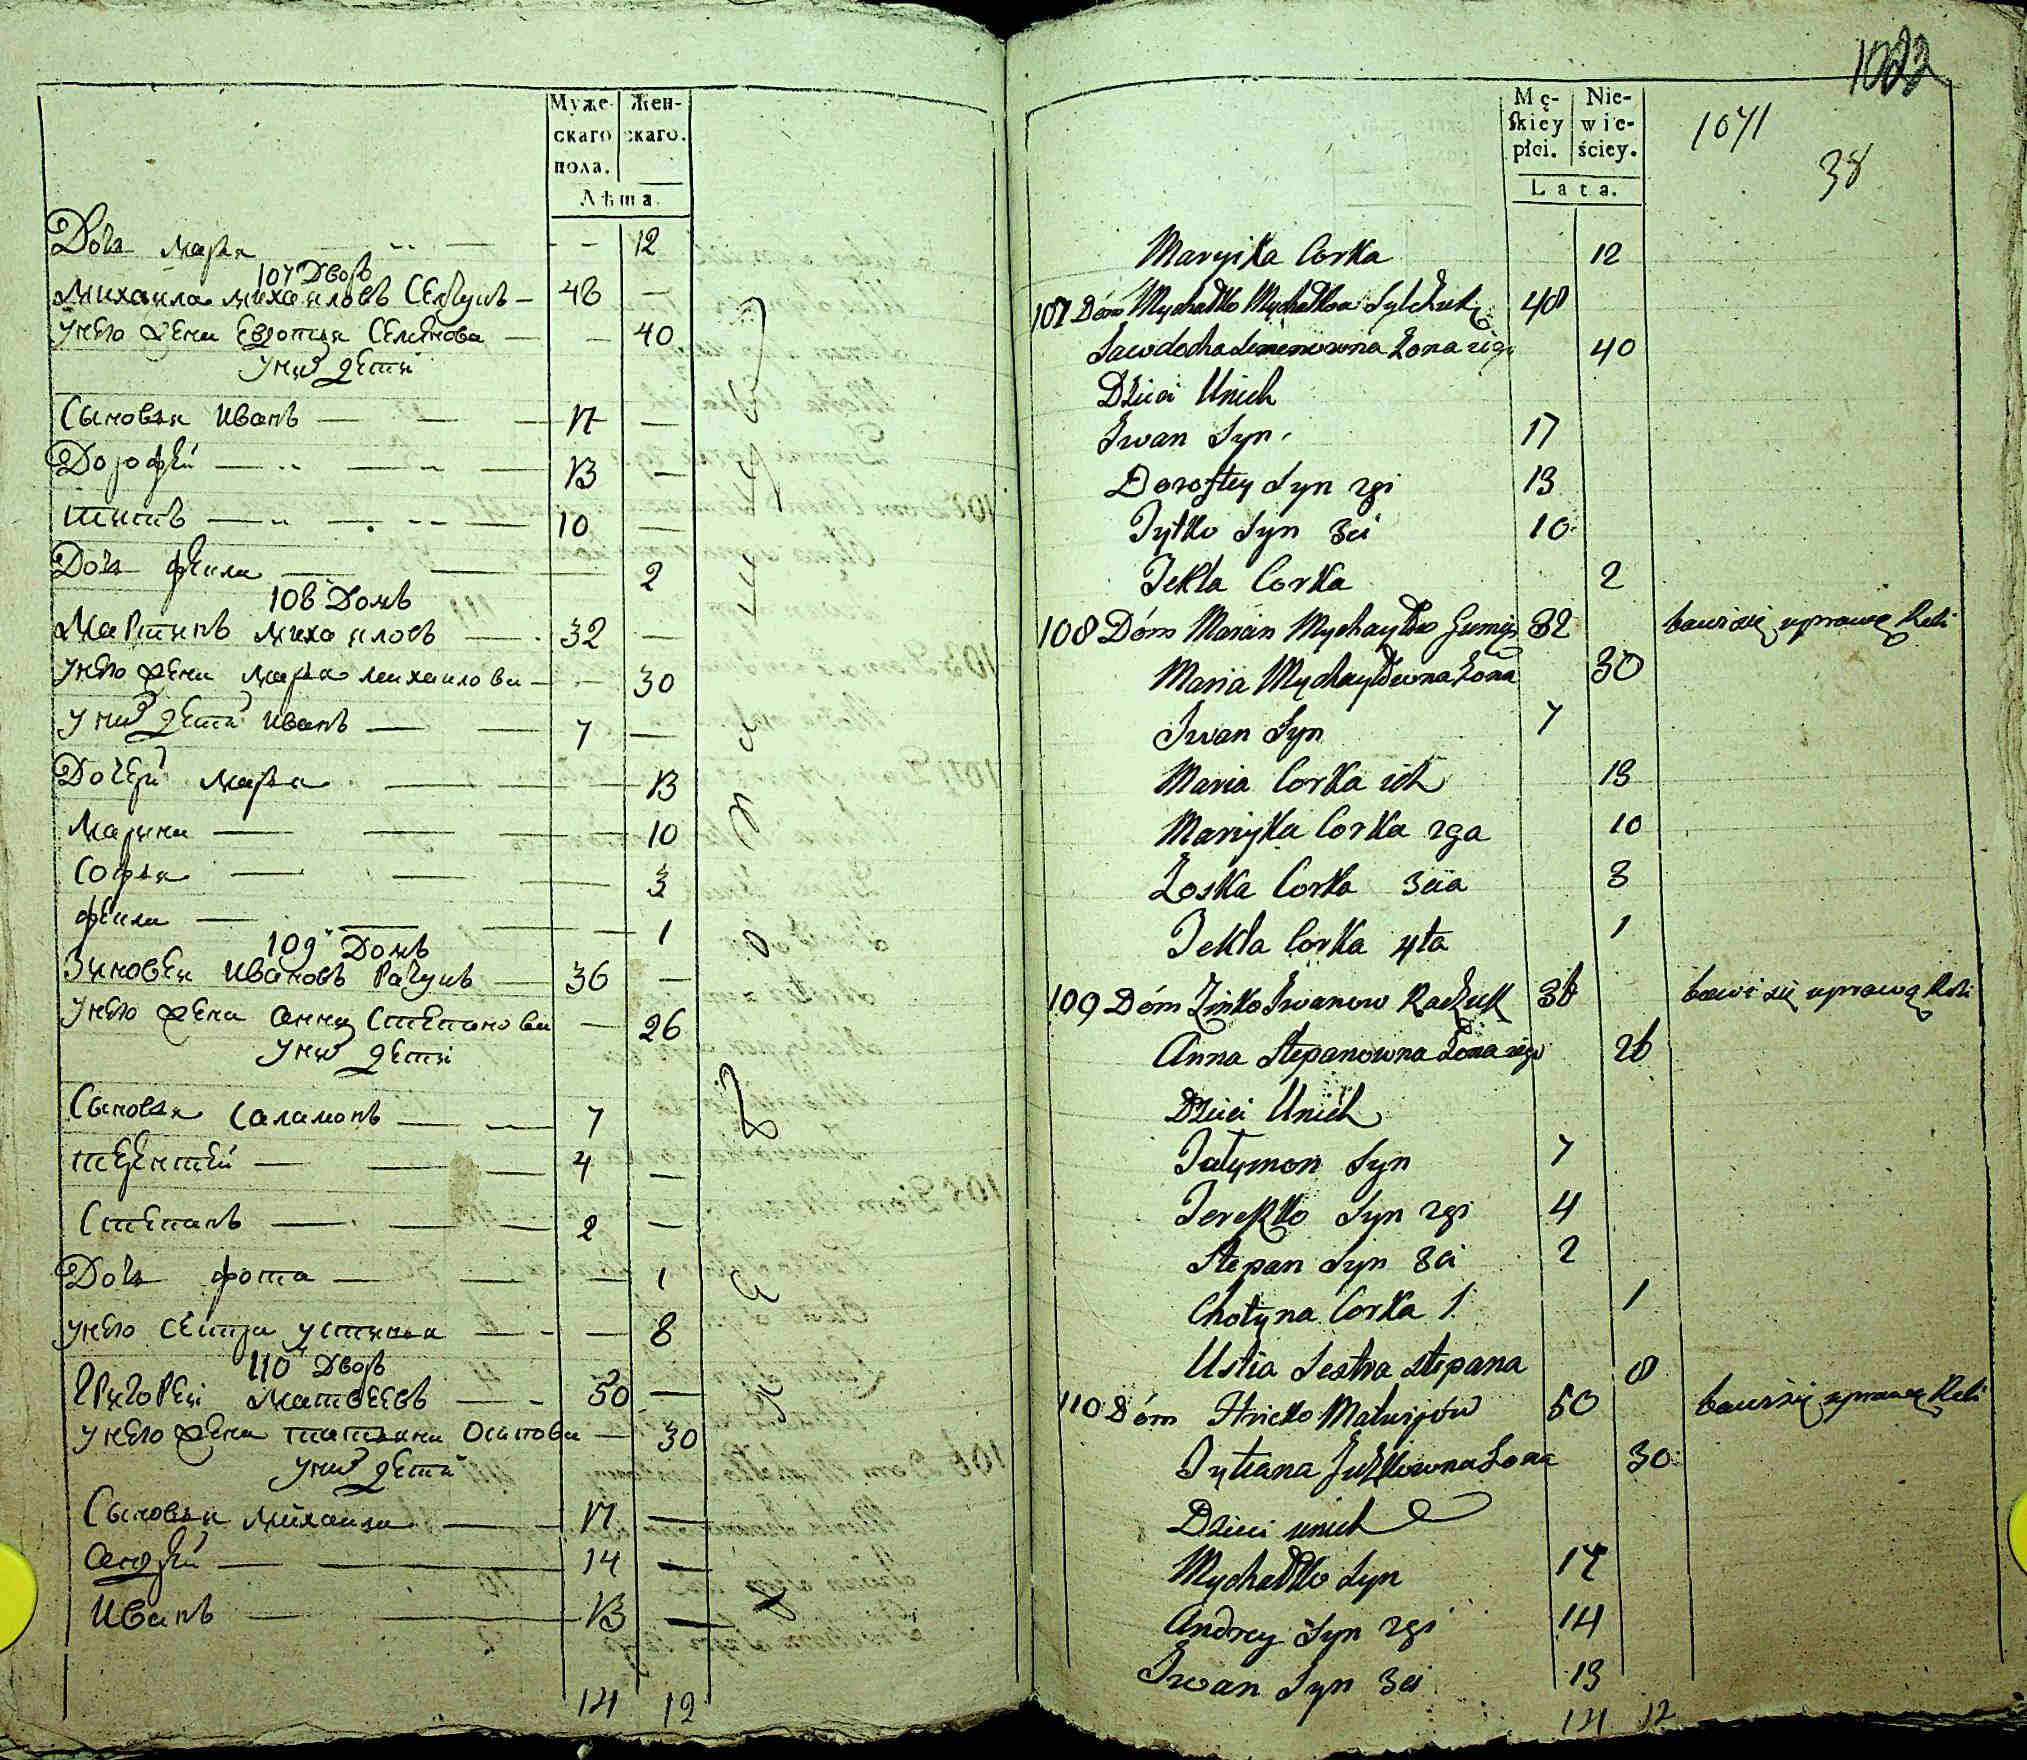 Муже-
скаго
пола.
Жен-
скаго.
Лѣта.
Дочь марья 12
107 Дворъ
Михаила михайловъ 48 —
у него жена Евдотия Семенова — 40
у нихъ дети
Сыновья Иванъ 17 —
Дорофей 13 —
титъ 10 —
Дочь фекла 2
108 Домъ
Мартинъ михайловъ 32 —
у него жена марья михайлова 30
у нихъ дети Иванъ 7 —
Дочери марья 13
марина 10
Софья 3
фекла 1
109 Домъ
Зиновей Ивановъ Рачукъ 36 —
у него жена анна Степанова — 26
у нихъ дети
Сыновья Саламонъ 7
терентей 4 —
Степанъ 2 —
Дочь фота 1
у него сестра устинья — 8
110 Дворъ
Григорей матвеевъ 50 —
у него жена татьяна Осипова — 30
у нихъ дети
Сыновья михаила 17 —
андрей 14 —
Иванъ 13 —
14 12
1023
Mę-
skiey
płci.
Nie-
wie-
ściey.
Lata.
1071
38
Maryika Corka 12
107 Dóm Mychałko Mychałkow 48
Jawdocha Semenowna Żona iego 40
Dzieci Unich
Iwan Syn 17
Dorofiey Syn 2gi 13
Tytko Syn 3ci 10
Tekla Corka 2
108 Dóm Marcin Mychayłow 32 bawi się uprawą Roli
Maria Mychayłowna Żona 30
Iwan Syn 7
Maria Corka ich 13
Maryjka Corka 2ga 10
Zoska Corka 3cia 3
Tekla Corka 4ta 1
109 Dóm Zinko Iwanow Raczuk 36 bawi się uprawą Roli
Anna Stepanowna Żona iego 26
Dzieci Unich
Sałymon Syn 7
Tereszko Syn 2gi 4
Stepan Syn 3ci 2
Chotyna Corka 1. 1
Ustia Sestra Stepana 8
110 Dóm Hricko Matwijów 50 bawi się uprawą Roli
Tytiana Juzkowna Żona 30
Dzieci unich
Mychałko Syn 17
Andrey Syn 2gi 14
Iwan Syn 3ci 13
14 12